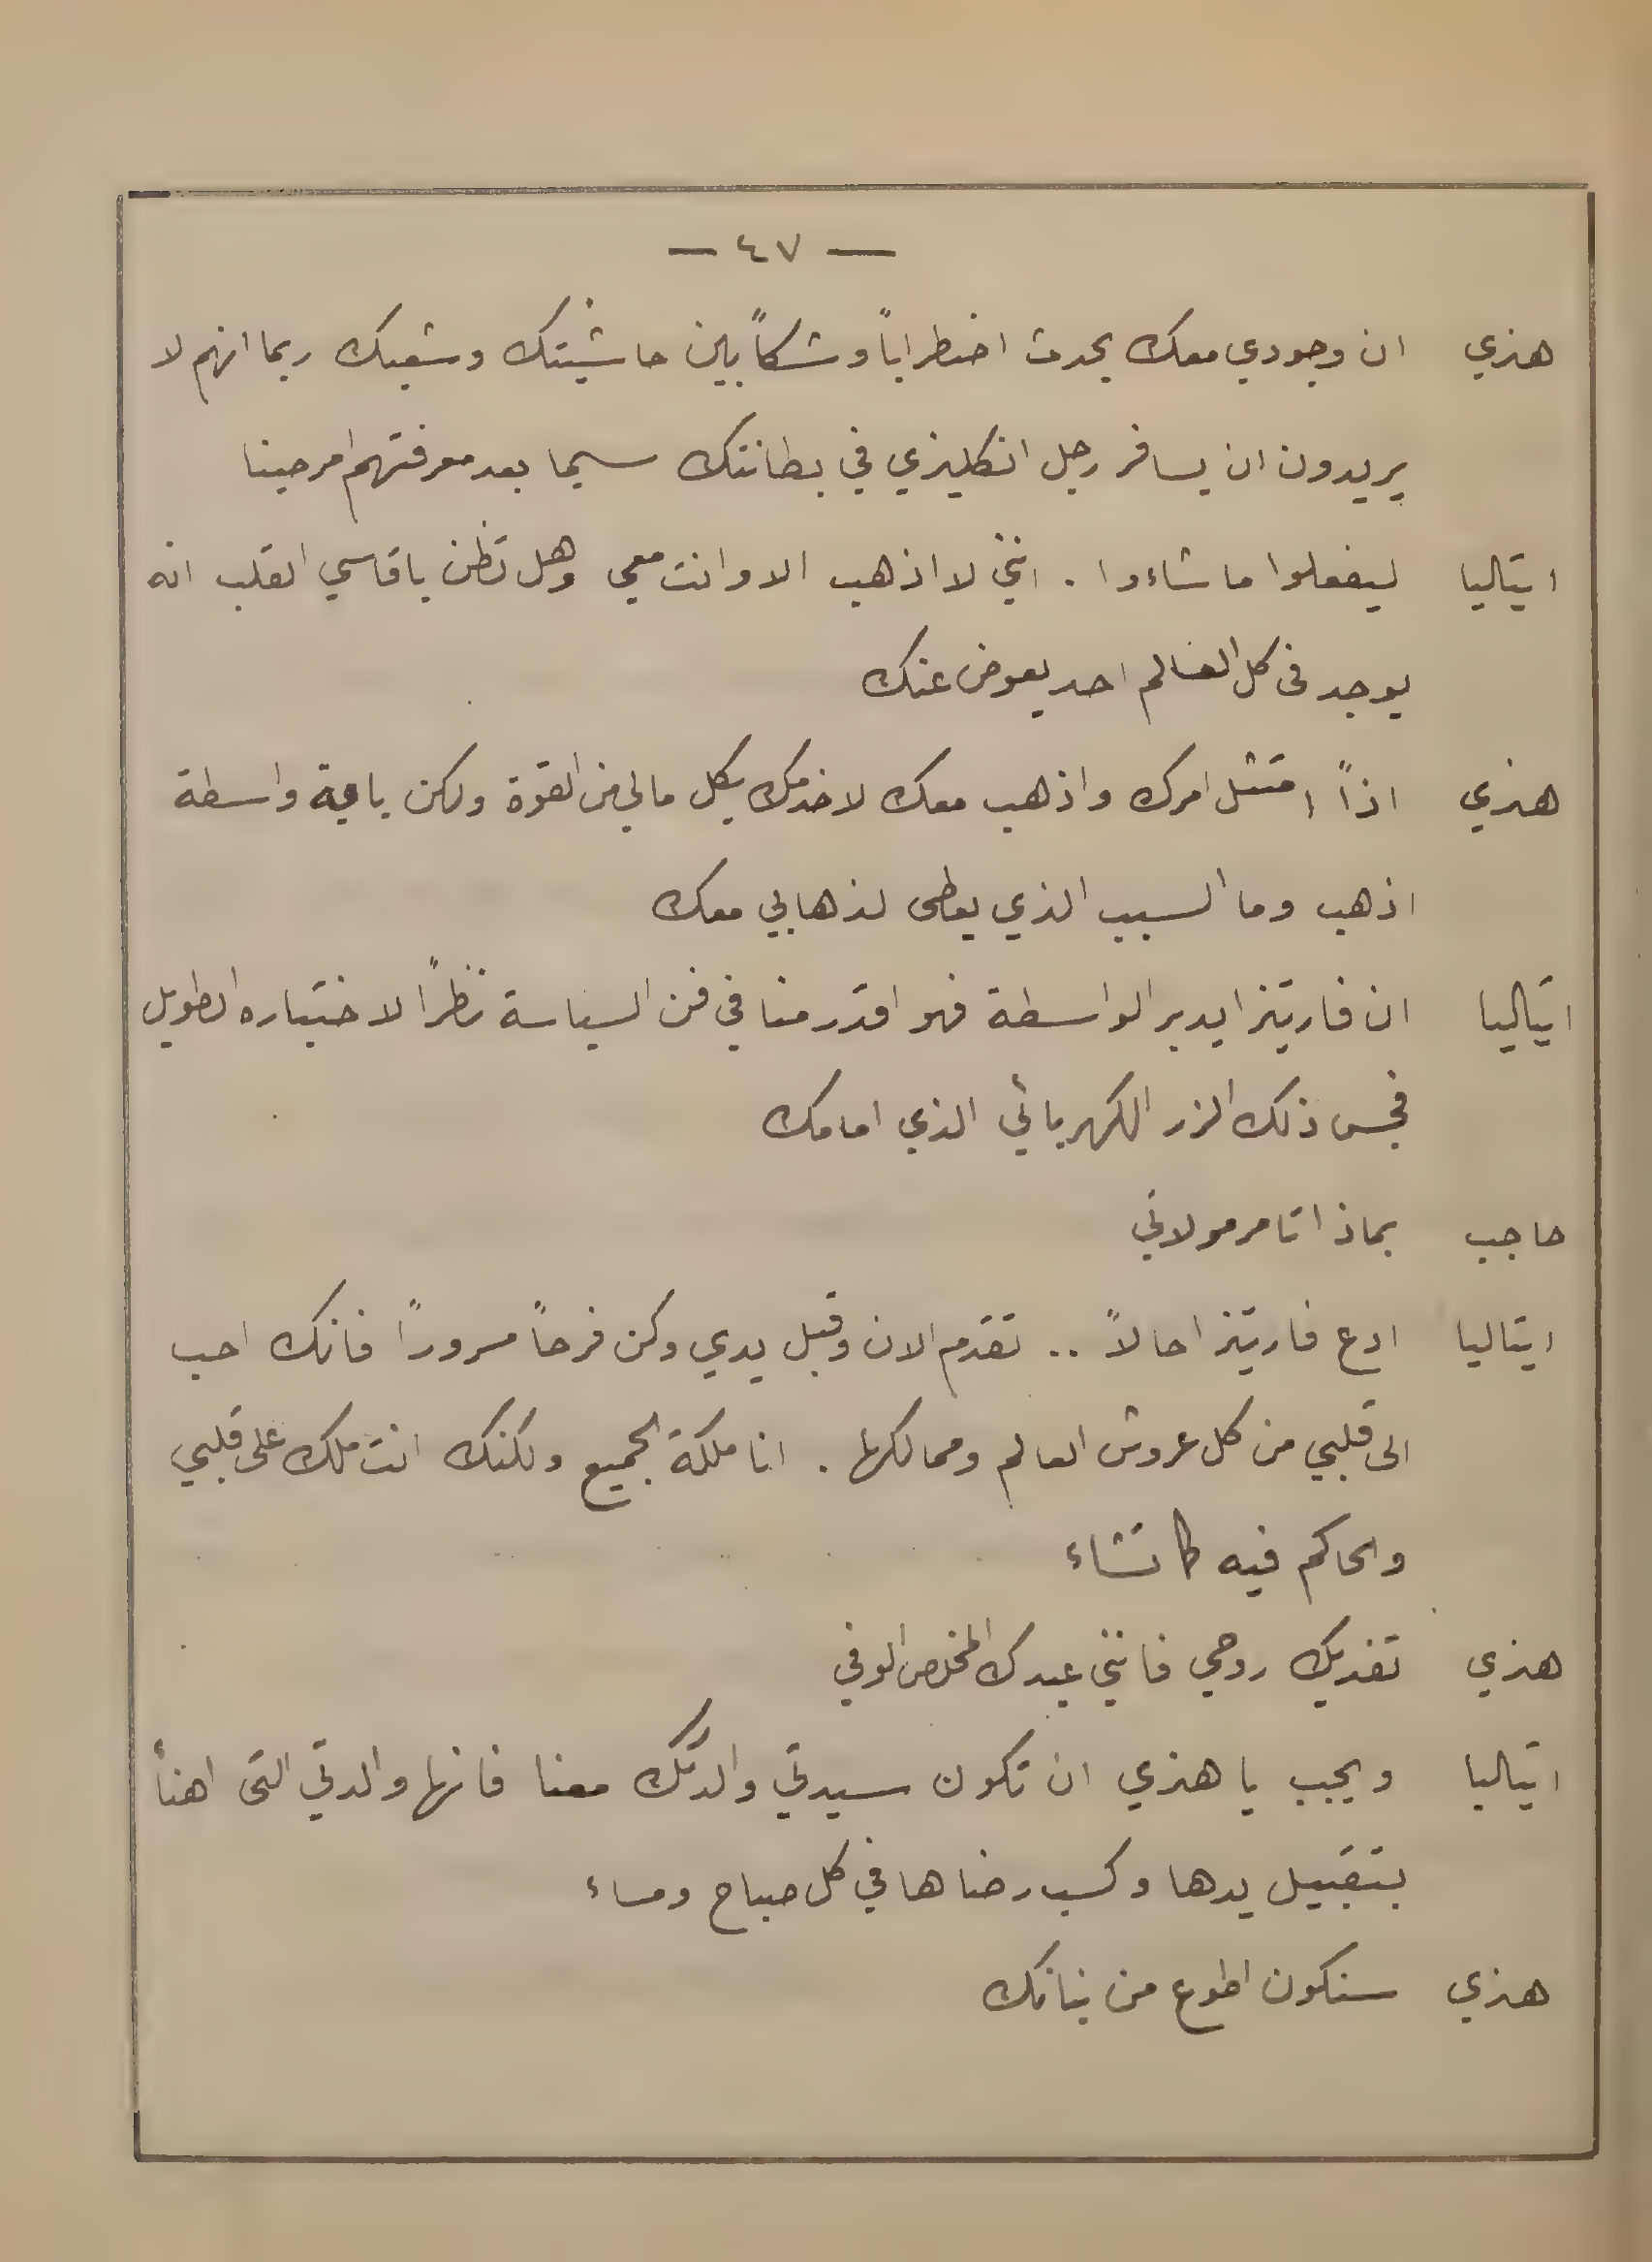 — ٤٧ —
هنري ان وجودي معك يحدث اضطراباً وشكاً بين حاشيتك وشعبك ربما انهم لا
يريدون ان يسافر رجل انكليزي في بطانتك سيما بعد معرفتهم امر حبنا
ايتاليا ليفعلوا ما شاءوا . انني لا اذهب الا وانت معي وهل تظن يا قاسي القلب انه
يوجد في كل العالم احد يعوض عنك
هنري اذاً امتثل امرك واذهب معك لاخدمك بكل ما لي من القوة ولكن باية واسطة
اذهب وما السبب الذي يعطى لذهابي معك
ايتاليا ان فاريتزا يدبر الواسطة فهو اقدر منا في فن السياسة نظراً لاختباره الطويل
فجس ذلك الزر الكهربائي الذي امامك
حاجب بماذا تامر مولاتي
ايتاليا ادع فاريتزا حالاً .. تقدم الان وقبل يدي وكن فرحاً مسروراً فانك احب
الى قلبي من كل عروش العالم وممالكها . انا ملكة الجميع ولكنك انت ملك على قلبي
والحاكم فيه كما تشاء
هنري تفديك روحي فانني عبدك المخلص الوفي
ايتاليا ويجب يا هنري ان تكون سيدتي والدتك معنا فانها والدتي التى اهنأ
بتقبيل يدها وكسب رضاها في كل صباح ومساء
هنري ستكون اطوع من بنانك